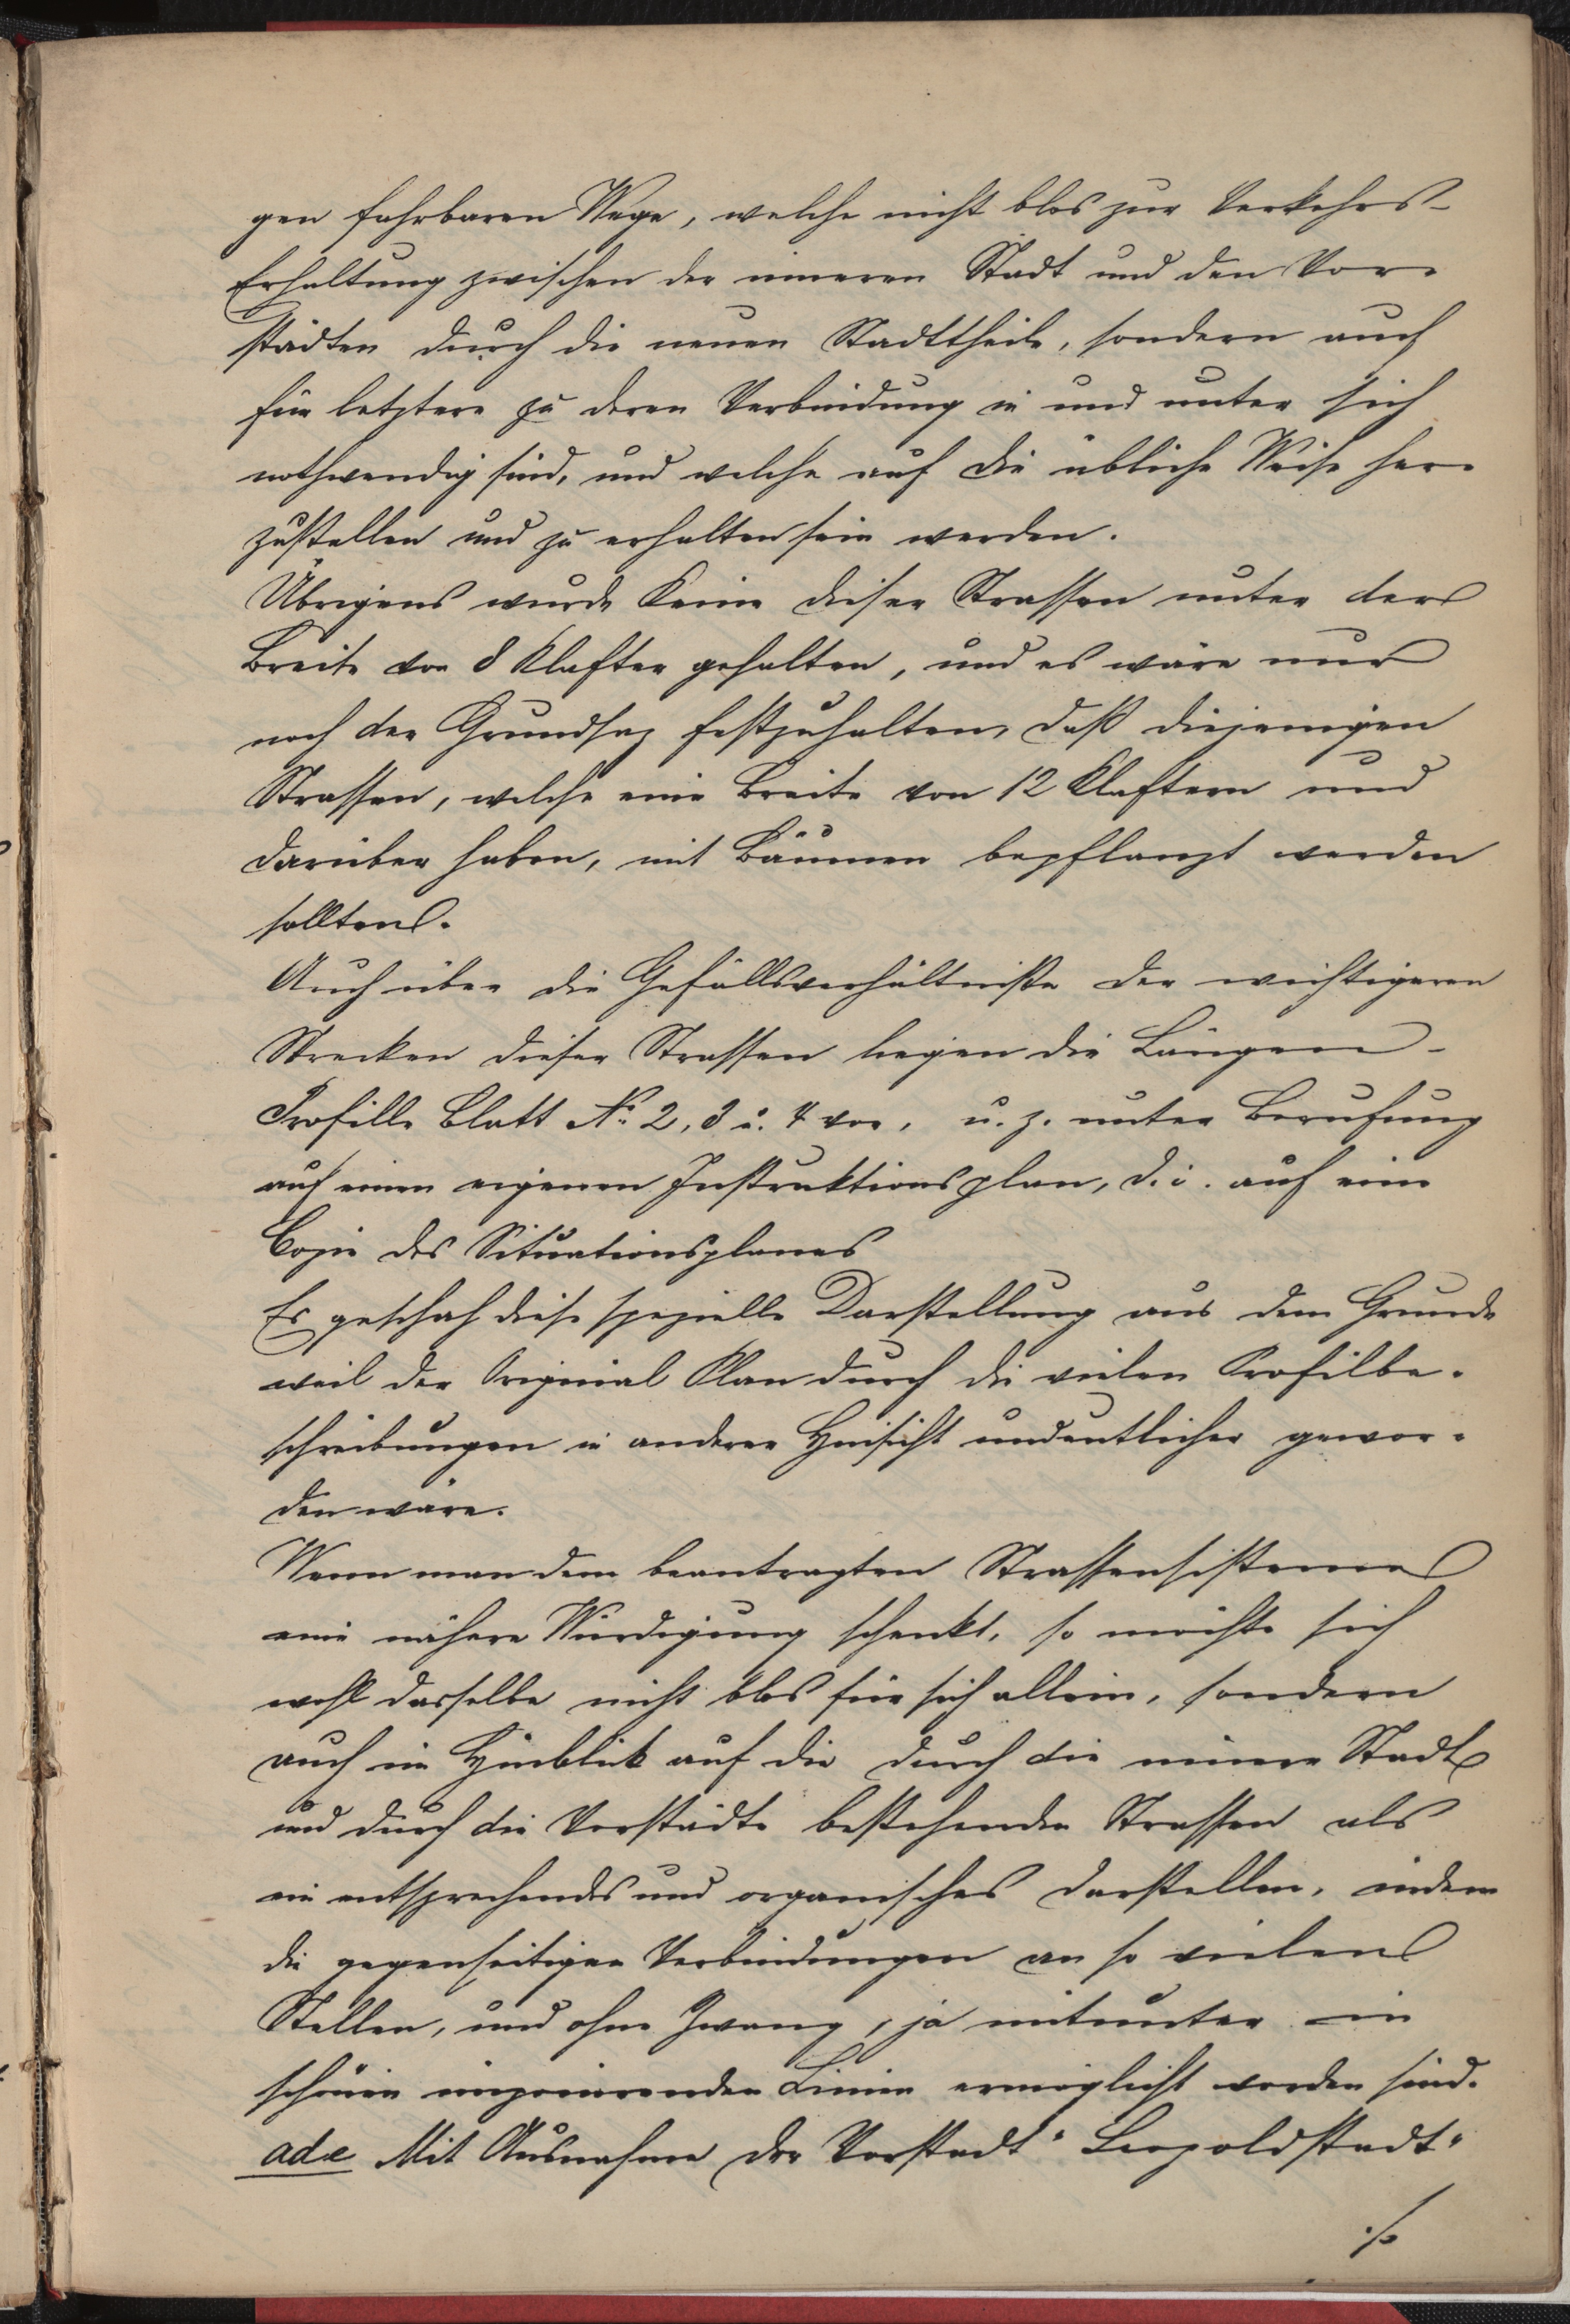 gen fahrbaren Wege, welche nicht blos zur Verkehrs-
Erhaltung zwischen der inneren Stadt und den Vor-
städten durch die neuen Stadttheile, sondern auch
für letztere zu deren Verbindung in und unter sich
nothwendig sind, und welche auf die übliche Weise her-
zustellen und zu erhalten sein werden.
Übrigens wurde keine dieser Strassen unter der
Breite von 8 Klafter gehalten, und es wäre nur
noch der Grundsaz festzuhalten, daß diejenigen
Strassen, welche eine Breite von 12 Klaftern und
darüber haben, mit Bäumen bepflanzt werden
sollten.
Auch über die Gefällsverhältnisse der wichtigeren
Strecken dieser Strassen liegen die Längen-
Profille Blatt No 2, 3 u. 4 vor, u. z. unter Berufung
auf einen eigenen Instruktionsplan, d. i. auf eine
Copie des Situationsplanes
Es geschah diese spezielle Darstellung aus dem Grunde
weil der Original Plan durch die vielen Profilbe-
schreibungen in anderer Hinsicht undeutlicher gewor-
den wäre.
Wenn man dem beantragten Strassensisteme
eine nähere Würdigung schenkt, so möchte sich
wohl dasselbe nicht blos für sich allein, sondern
auch im Hinblick auf die durch die innere Stadt
und durch die Vorstädte bestehenden Strassen als
ein entsprechendes und organisches darstellen, indem
die gegenseitigen Verbindungen an so vielen
Stellen, und ohne Zwang, ja mitunter in
schönen imponirenden Linien ermöglicht worden sind.
ad e Mit Ausnahme der Vorstadt "Leopoldstadt"
./.